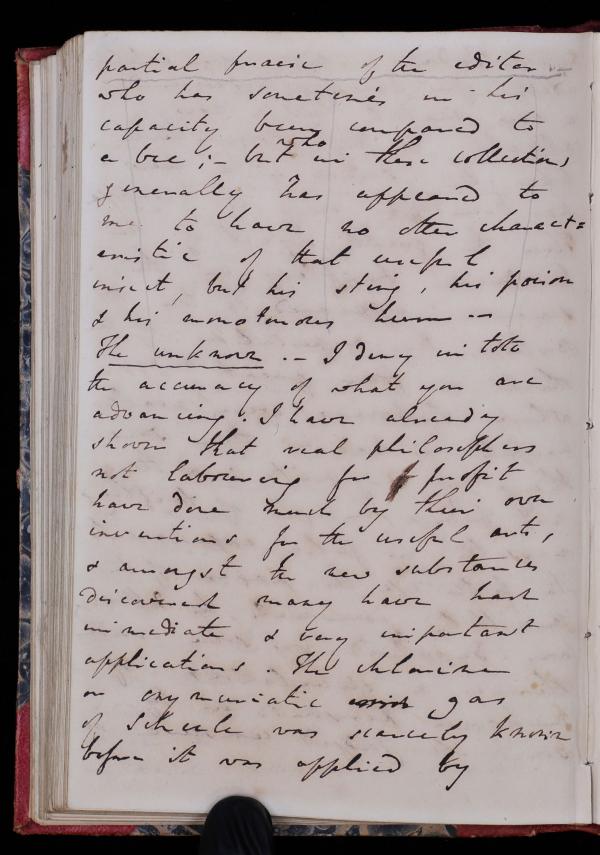 partial praise of the editor
who has sometimes in his
capacity been compared to
a bee; – but who in these collections
generally has appeared to
me to have no other charact=
eristic of that useful
insect, but his sting, his poison
& his monotonous hum –
The unknown. – I deny in toto
the accuracy of what you are
advancing. I have already
shown that real philosophers
not labouring for profit
have done much by their own
inventions for the useful arts,
& amongst the new substances
discovered many have had
immediate & very important
applications. The chlorine
or oxymuriatic gas
of Scheele was scarcely known
before it was applied by